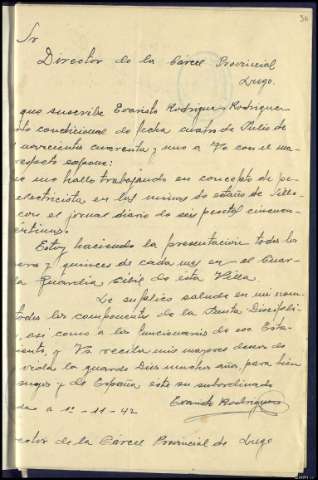 30
Sr
Director de la Cárcel Provincial
Lugo.
que suscribe Evaristo Rodriguez Rodriguez
to condicional de fecha cuatro de Julio de
cuarenta y uno a Vd con el ma
respeto expone:
me hallo trabajando en concepto de
electricista en las minas de estaño de
con el jornal diario de seis pesetas cincuen
Estoy haciendo la presentacion todos los
y quinces de cada mes en el Cuar
Guardia Civil de esta Villa.
Le suplico salude en mi nom
todos los componentes de la Junta Discipli
, asi como a los funcionarios de ese Esta
y Vd reciba mis mayores deseos de
guarde Dios muchos años, para bien
y de España este su subordinado
a 1º-11-42
Evaristo Rodriguez
Director de la Cárcel Provincial de Lugo